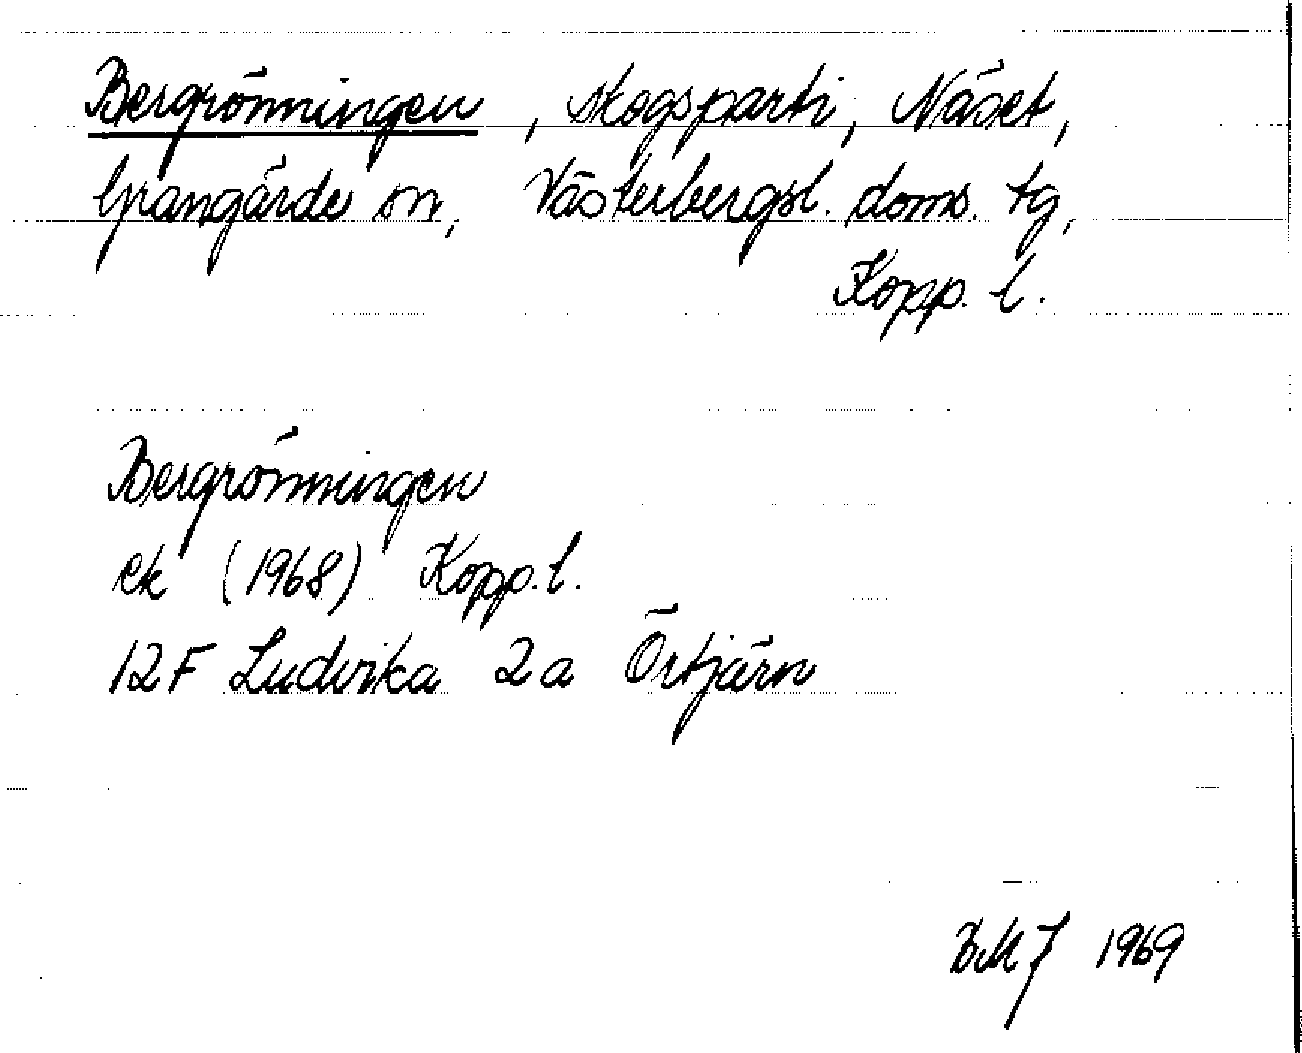 Bergrönningen, skogsparti, Näset,
Grangärde sn, Västerbergsl. doms. tg,
Kopp. l.
Bergrönningen
ek (1968) Kopp. l.
12F Ludvika 2a Örtjärn
BMJ 1969